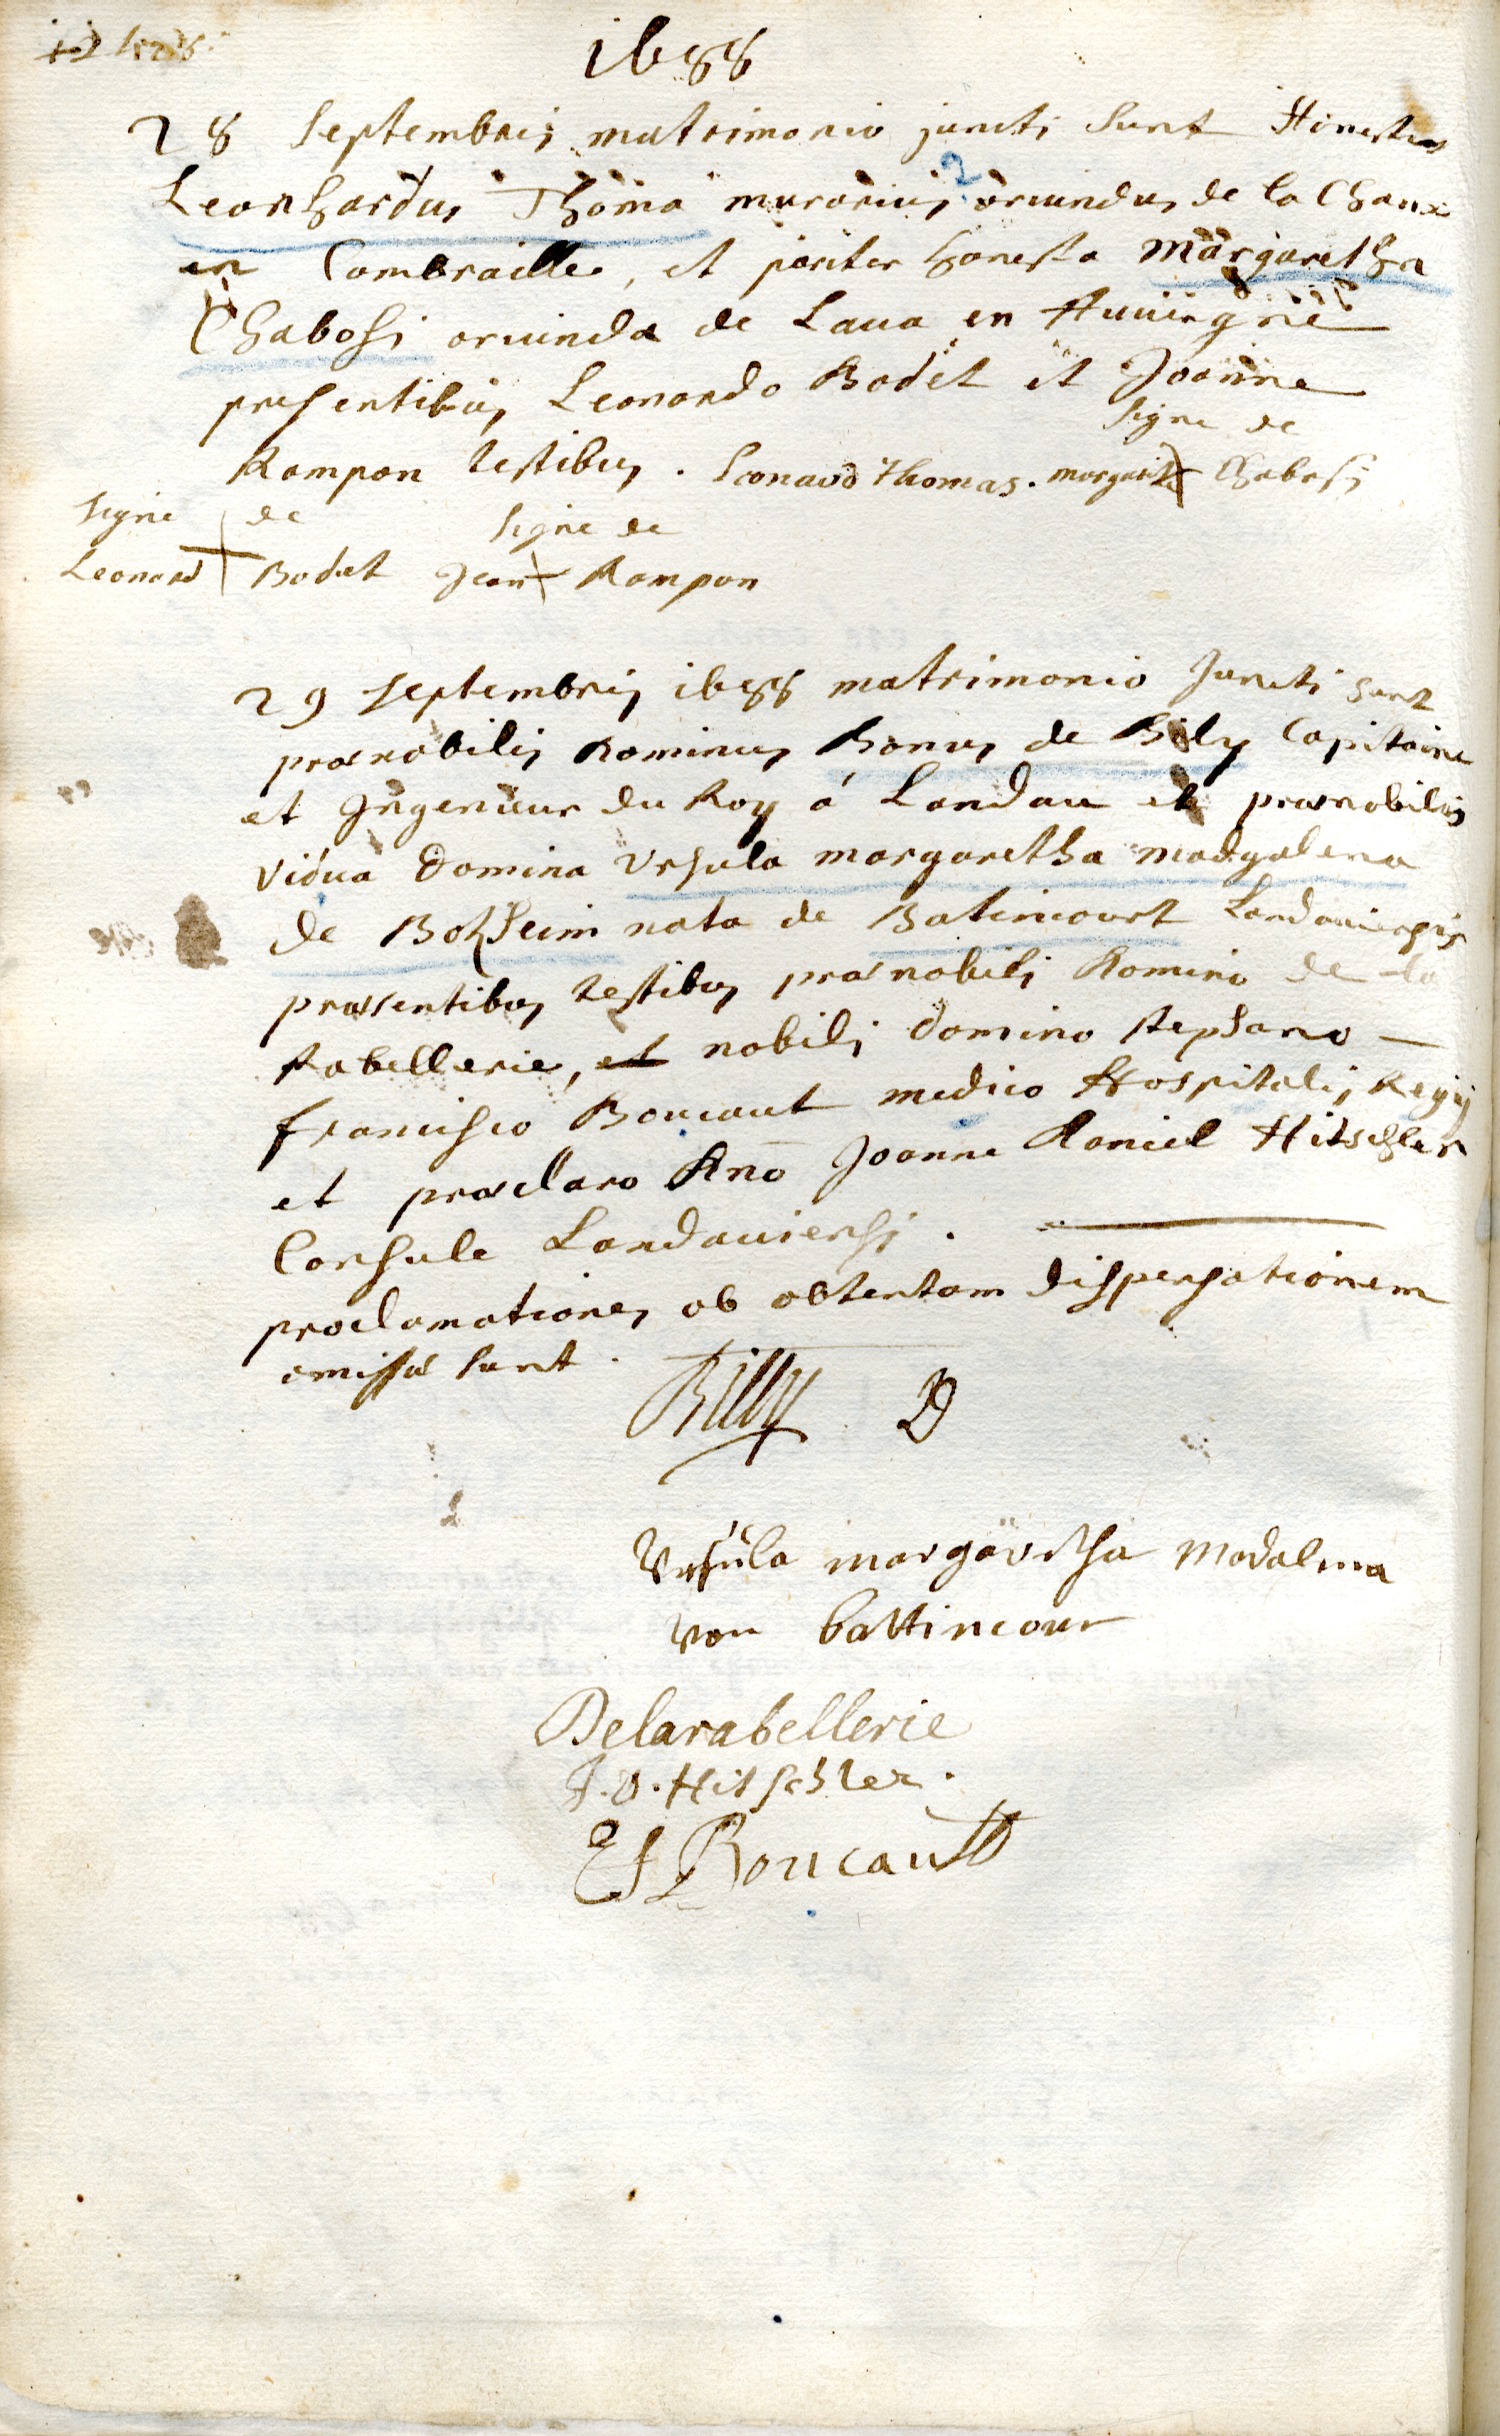 1688
28 Septembris matrimonio juncti sunt Honestus
Leonhardus Thoma murarius oriundus de la Chaux
en Combraille, et pariter honesta Margaretha
Chabosi oriunda de Laua en Auuergnie
presentibus Leonardo Bodet et Joanne
Rampon testibus. Leonard Thomas. signe de margarite Chabosi
signe de signe de
Leonard Bodet Jean Rampon
29 Septembris 1688 matrimonio Juncti sunt
prænobilis Dominus Bonus de Bily Capitaine
et Ingenieur du Roy á Landau et prænobilis
vidua Domina Ursula margaretha madgalena
de Botzheim nata de Batincourt Landauiensis
præsentibus testibus prænobili Domino de la
Rabellerie, et nobili Domino stephano
francisco Boucaut medico Hospitalis Regij
et præclaro Dno Joanne Daniel Hitschler
Consule Landauiensi.
proclamationes ob obtentam dispensationem
omissæ sunt.
Billy D
Ursula margaretha Madalena
von battincour
Delarabellerie
J. D. Hitschler.
Ef Boucault